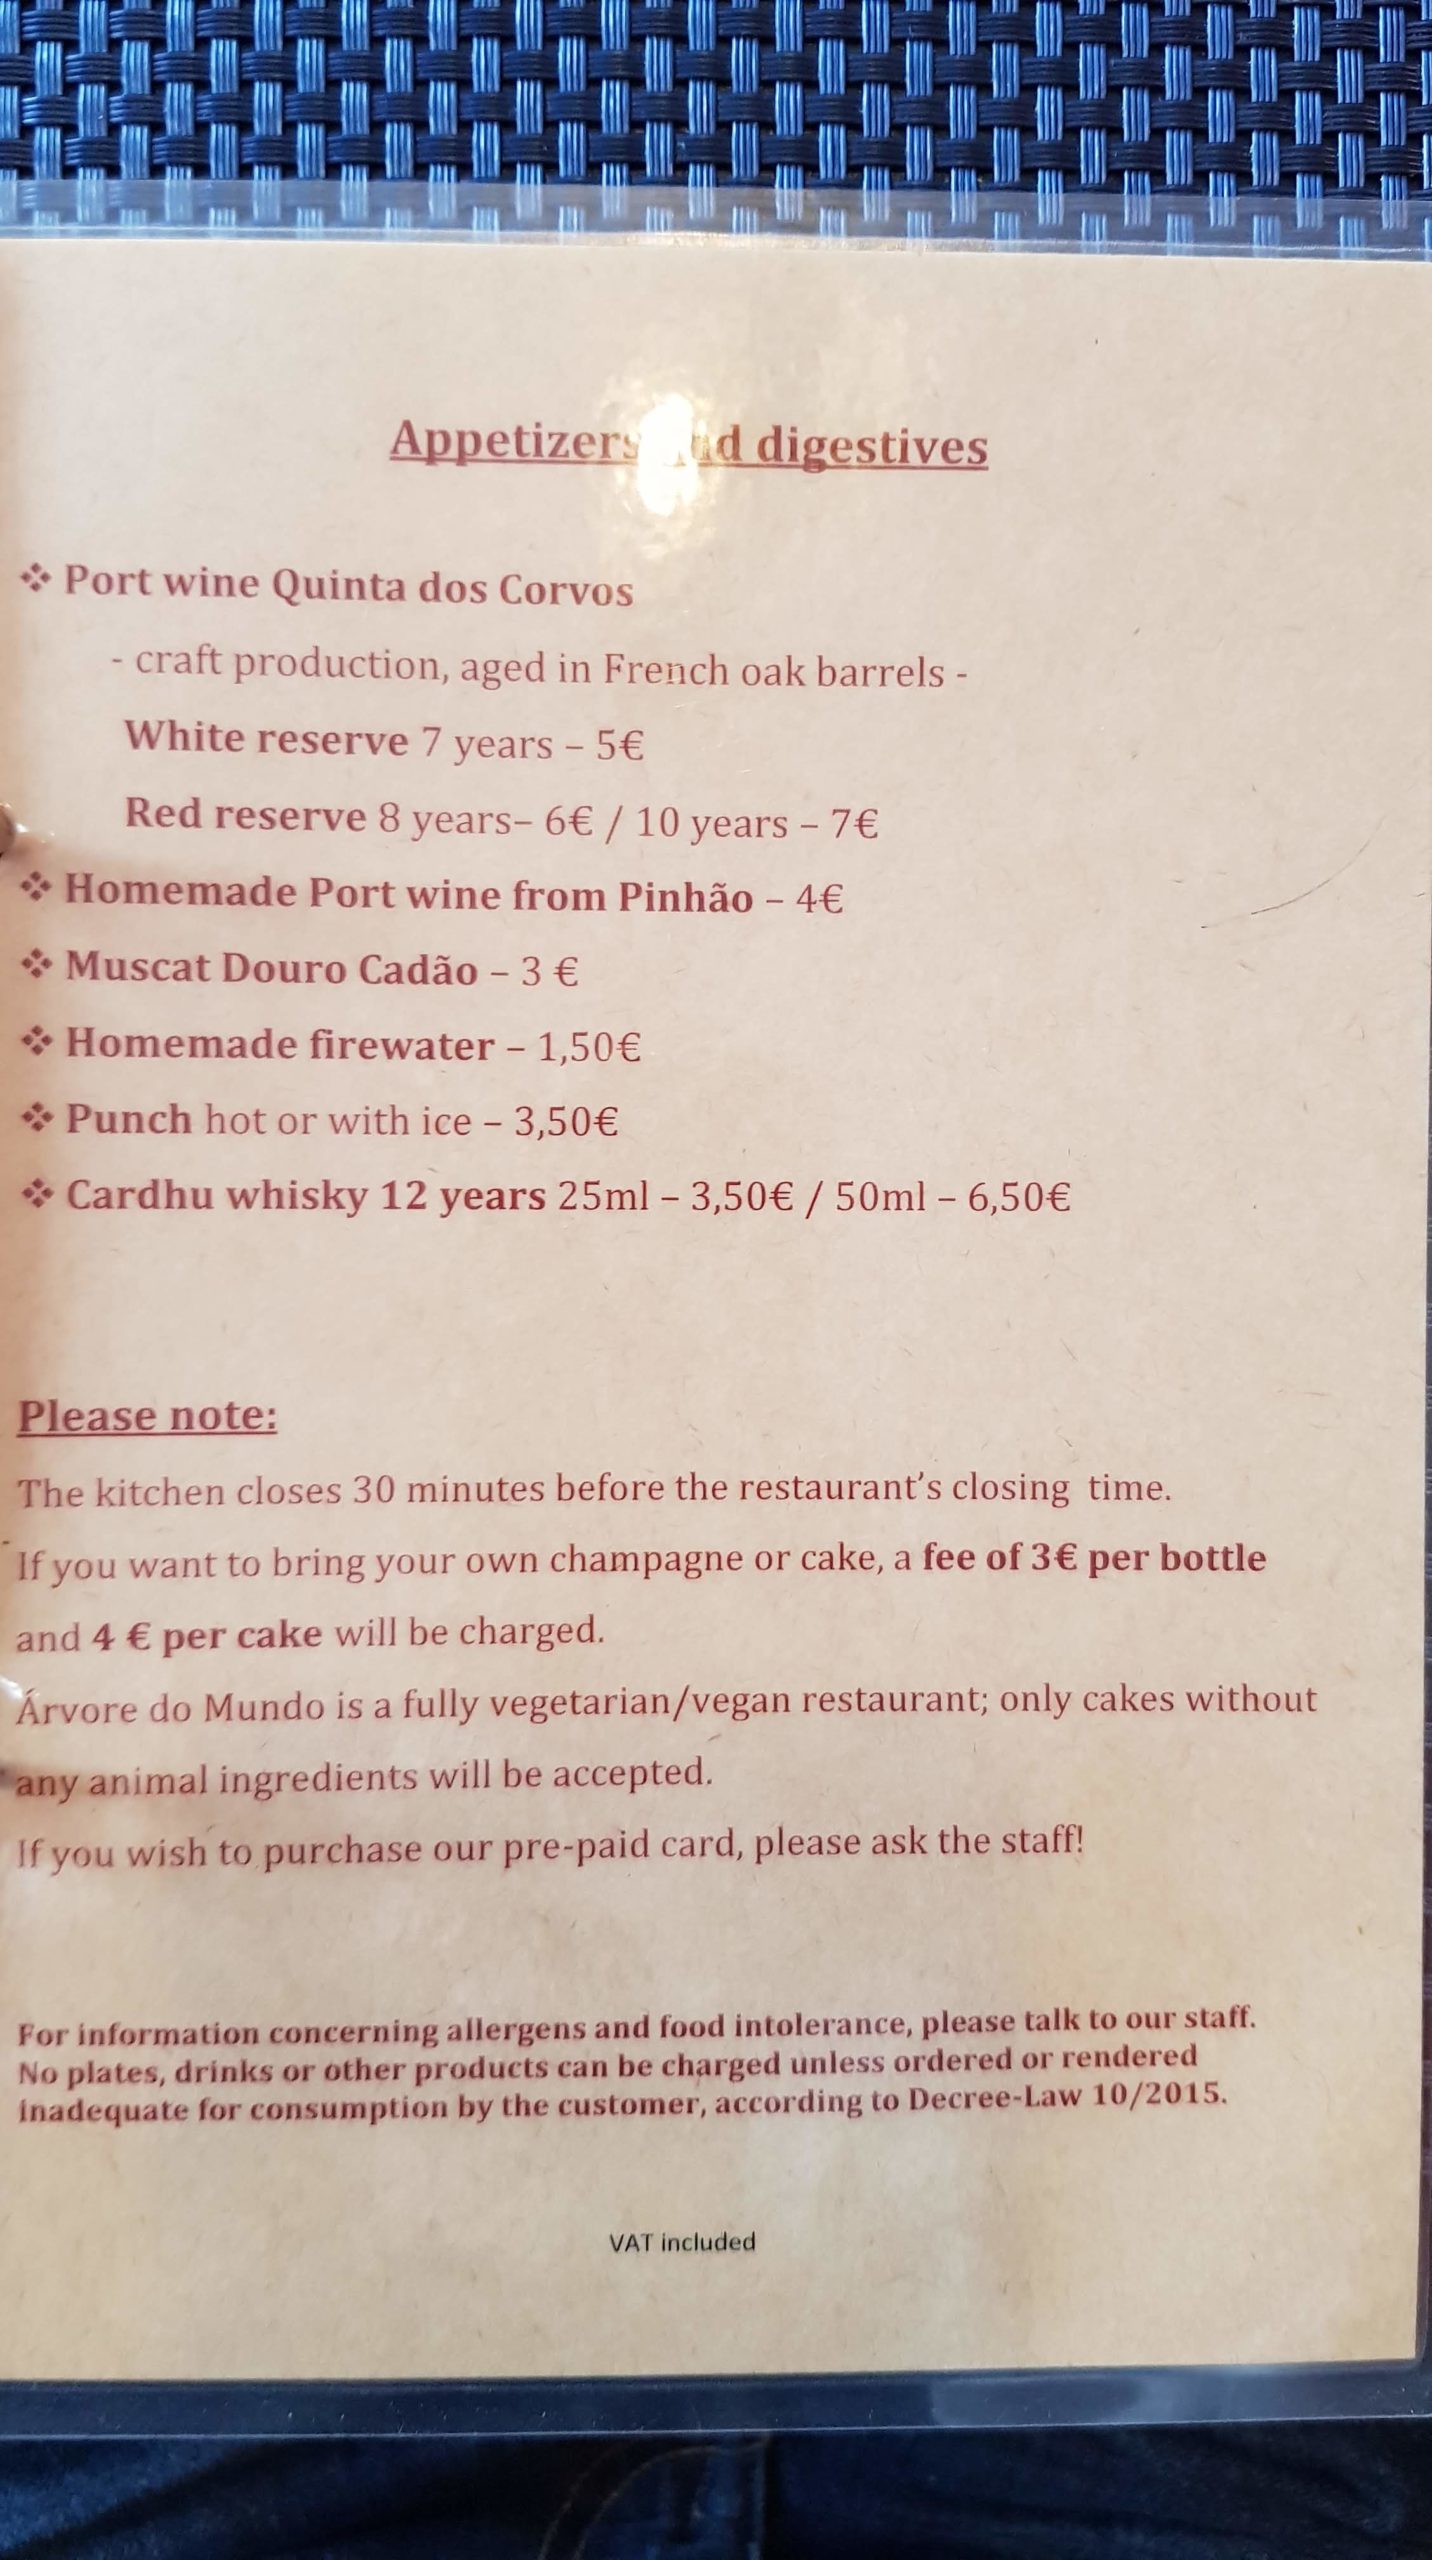 Appetizers and digestives
❖ Port wine Quinta dos Corvos
- craft production, aged in French oak barrels -
White reserve 7 years – 5€
Red reserve 8 years– 6€ / 10 years – 7€
❖ Homemade Port wine from Pinhão – 4€
❖ Muscat Douro Cadão – 3 €
❖ Homemade firewater – 1,50€
❖ Punch hot or with ice – 3,50€
❖ Cardhu whisky 12 years 25ml – 3,50€ / 50ml – 6,50€
Please note:
The kitchen closes 30 minutes before the restaurant’s closing time.
If you want to bring your own champagne or cake, a fee of 3€ per bottle
and 4 € per cake will be charged.
Árvore do Mundo is a fully vegetarian/vegan restaurant; only cakes without
any animal ingredients will be accepted.
If you wish to purchase our pre-paid card, please ask the staff!
For information concerning allergens and food intolerance, please talk to our staff.
No plates, drinks or other products can be charged unless ordered or rendered
inadequate for consumption by the customer, according to Decree-Law 10/2015.
VAT included